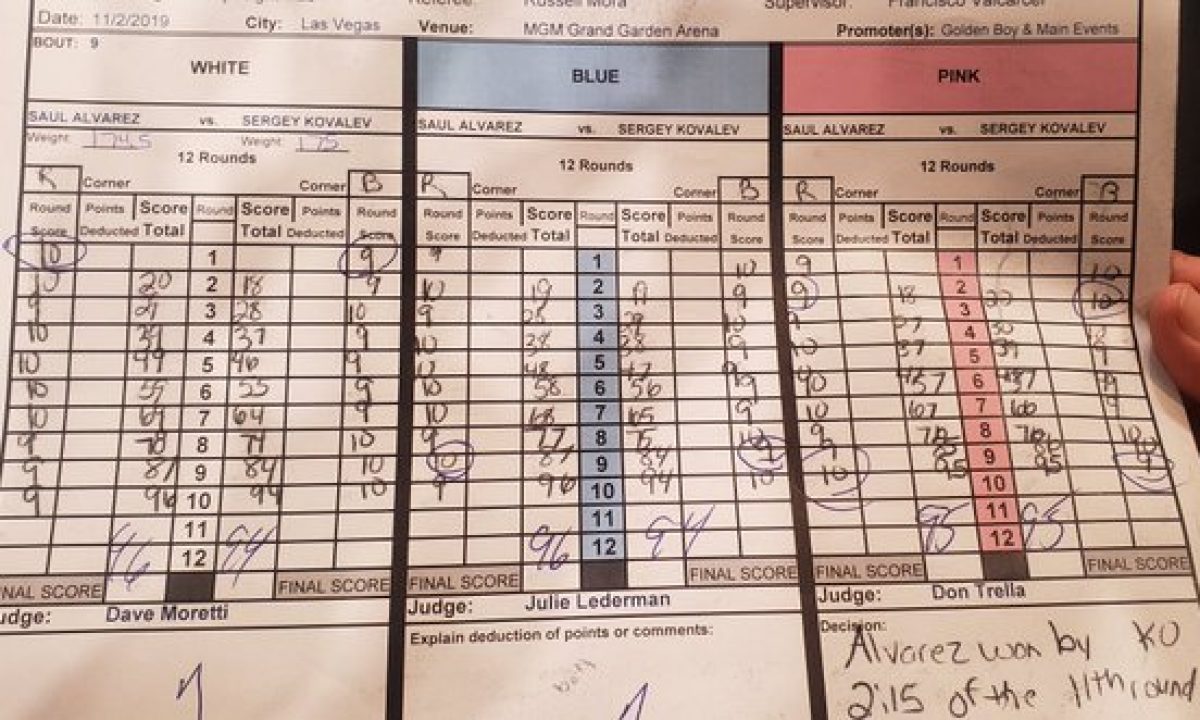 Referee: Russell Mora Supervisor: Francisco Valcarcel
Date: 11/2/2019 City: Las Vegas Venue: MGM Grand Garden Arena Promoter(s): Golden Boy & Main Events
BOUT: 9
WHITE BLUE PINK
SAUL ALVAREZ vs. SERGEY KOVALEV SAUL ALVAREZ vs. SERGEY KOVALEV SAUL ALVAREZ vs. SERGEY KOVALEV
Weight 174.5 Weight 175
12 Rounds 12 Rounds 12 Rounds
R Corner Corner B R Corner Corner B R Corner Corner B
Round Points Score Round Score Points Round Round Points Score Round Score Points Round Round Points Score Round Score Points Round
Score Deducted Total Total Deducted Score Score Deducted Total Total Deducted Score Score Deducted Total Total Deducted Score
10 1 9 9 1 10 9 1 10
10 20 2 18 9 10 19 2 19 9 9 18 2 20 10
9 3 28 10 9 3 10 3
10 39 4 37 9 10 38 4 38 9 10 37 4 39 9
10 49 5 46 9 48 5 47 5
10 59 6 55 9 10 58 6 56 9 57 6 57 9
10 69 7 64 9 10 68 7 65 9 10 67 7 66 9
9 78 8 74 10 9 77 8 75 10 9 76 8 76 10
9 87 9 84 10 10 87 9 84 9 10 9 9
9 96 10 94 10 9 96 10 94 10 95 10 95
11 11 11
96 12 94 96 12 94 95 12 95
FINAL SCORE FINAL SCORE FINAL SCORE FINAL SCORE FINAL SCORE FINAL SCORE
Judge: Dave Moretti Judge: Julie Lederman Judge: Don Trella
Explain deduction of points or comments: Decision:
Alvarez won by KO
2:15 of the 11th round